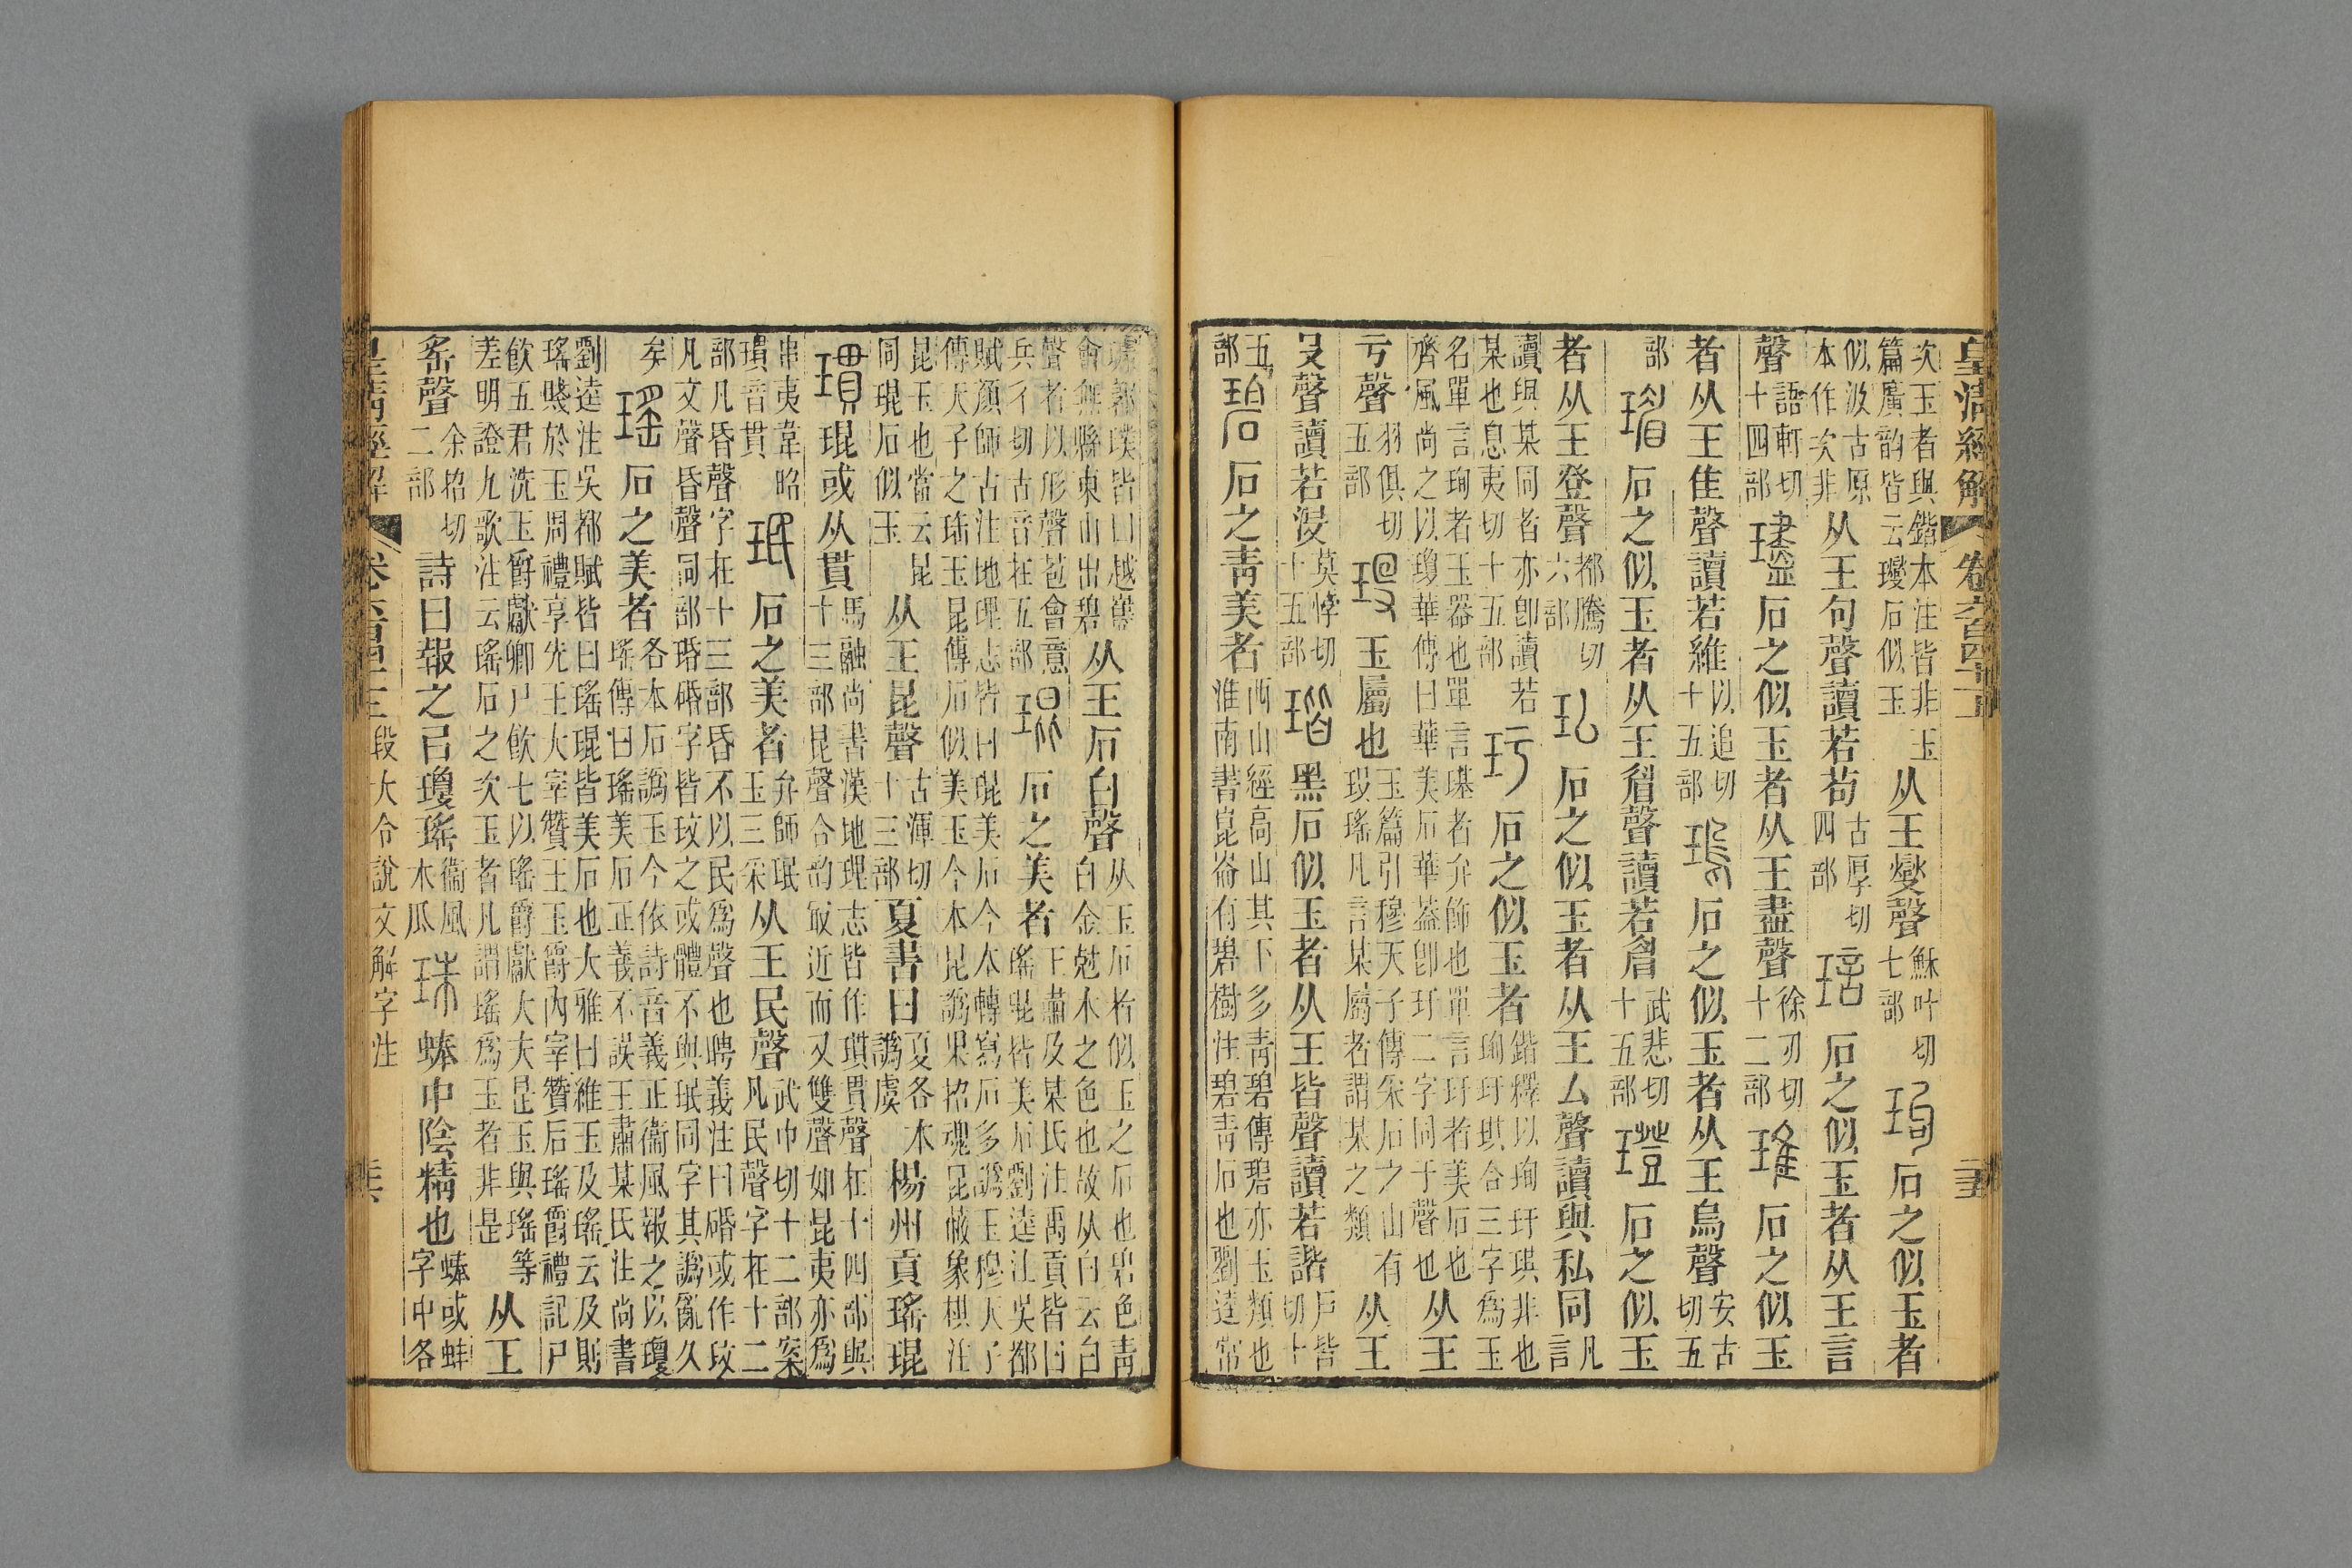 皇清經解 卷六百四十一
次玉者與鍇本注皆非玉篇廣韵皆云㻏石似玉从王燮聲穌叶切七部玽石之似玉者
似汲古原本作次非从王句聲讀若苟古厚切四部琂石之似玉者从王言
聲語軒切十四部璶石之似玉者从王盡聲徐刃切十二部琟石之似玉
者从王隹聲讀若維以追切十五部瑦石之似玉者从王烏聲安古切五
部瑂石之似玉者从王眉聲讀若眉武悲切十五部璒石之似玉
者从王登聲都騰切六部㺨石之似玉者从王厶聲讀與私同凡言
讀與某同者亦卽讀若某也息夷切十五部玗石之似玉者鍇釋以珣玗琪非也珣玗琪合三字爲玉
名單言珣者玉器也單言璂者弁飾也單言玗者美石也齊風尚之以瓊華傳曰華美石華葢卽玗二字同于聲也从王
亏聲羽俱切五部玉屬也玉篇引穆天子傳采石之山有瑤凡言某屬者謂某之類从王
𠬸聲讀若沒莫悖切十五部瑎黑石似玉者从王皆聲讀若諧戶皆切十
五部碧石之青美者西山經高山其下多青碧傳碧亦玉類也淮南書崑崙有碧樹注碧青石也劉逵常
璩郭璞皆曰越巂會無縣東山出碧从王石白聲从玉石者似玉之石也碧色青白金尅木之色也故从白云白
聲者以形聲苞會意兵彳切古音在五部琨石之美者王肅及某氏注禹貢皆曰瑤琨皆美石劉逵注吳都
賦顏師古注地理志皆曰琨美石今本轉寫石多譌玉穆天子傳天子之珤玉昆傳石似美玉今本昆譌果招魂昆蔽象棋注
昆玉也當云昆同琨石似玉从王昆聲古渾切十三部夏書曰夏各本譌虞楊州貢瑤琨
瑻琨或从貫馬融尚書漢地理志皆作瑻貫聲在十四部與十三部昆聲合韵最近而又雙聲如昆夷亦爲
串夷韋昭瑻音貫珉石之美者弁師珉玉三采从王民聲武巾切十二部案凡民聲字在十二
部凡昏聲字在十三部昏不以民爲聲也聘義注曰碈或作玟凡文聲昏聲同部瑉碈字皆玟之或體不與珉同字其譌亂久
矣瑤石之美者各本石譌玉今依詩音義正衞風報之以瓊瑤傳曰瑤美石正義不誤王肅某氏注尚書
劉逵注吳都賦皆曰瑤琨皆美石也大雅曰維玉及瑤云及則瑤賤於玉周禮享先王大宰贊王玉爵內宰贊后瑤爵禮記尸
飲五君洗玉爵獻卿尸飲七以瑤爵獻大夫是玉與瑤等差明證九歌注云瑤石之次玉者凡謂瑤爲玉者非是从王
䍃聲余招切二部詩曰報之㠯瓊瑤衞風木瓜珠蚌中陰精也蚌或蚌字中各
皇清經解 卷六百四十一 段大令說文解字注